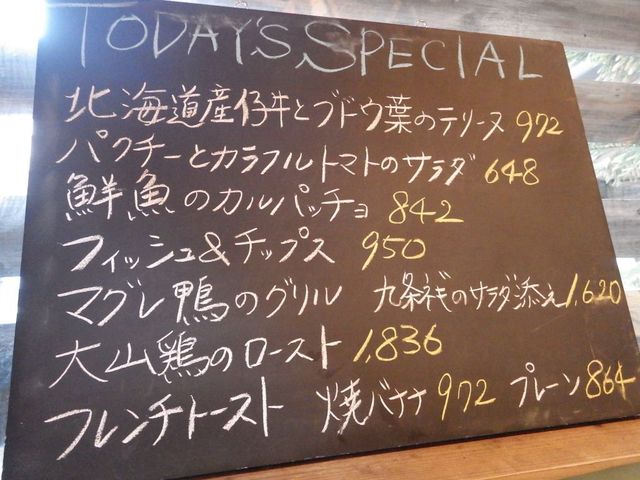 TODAY'S SPECIAL
北海道産仔牛とブドウ葉のテリーヌ 972
パクチーとカラフルトマトのサラダ 648
鮮魚のカルパッチョ 842
フィッシュ&チップス 950
マグレ鴨のグリル 九条ネギのサラダ添え 1,620
大山鶏のロースト 1,836
フレンチトースト 焼バナナ 972 プレーン 864